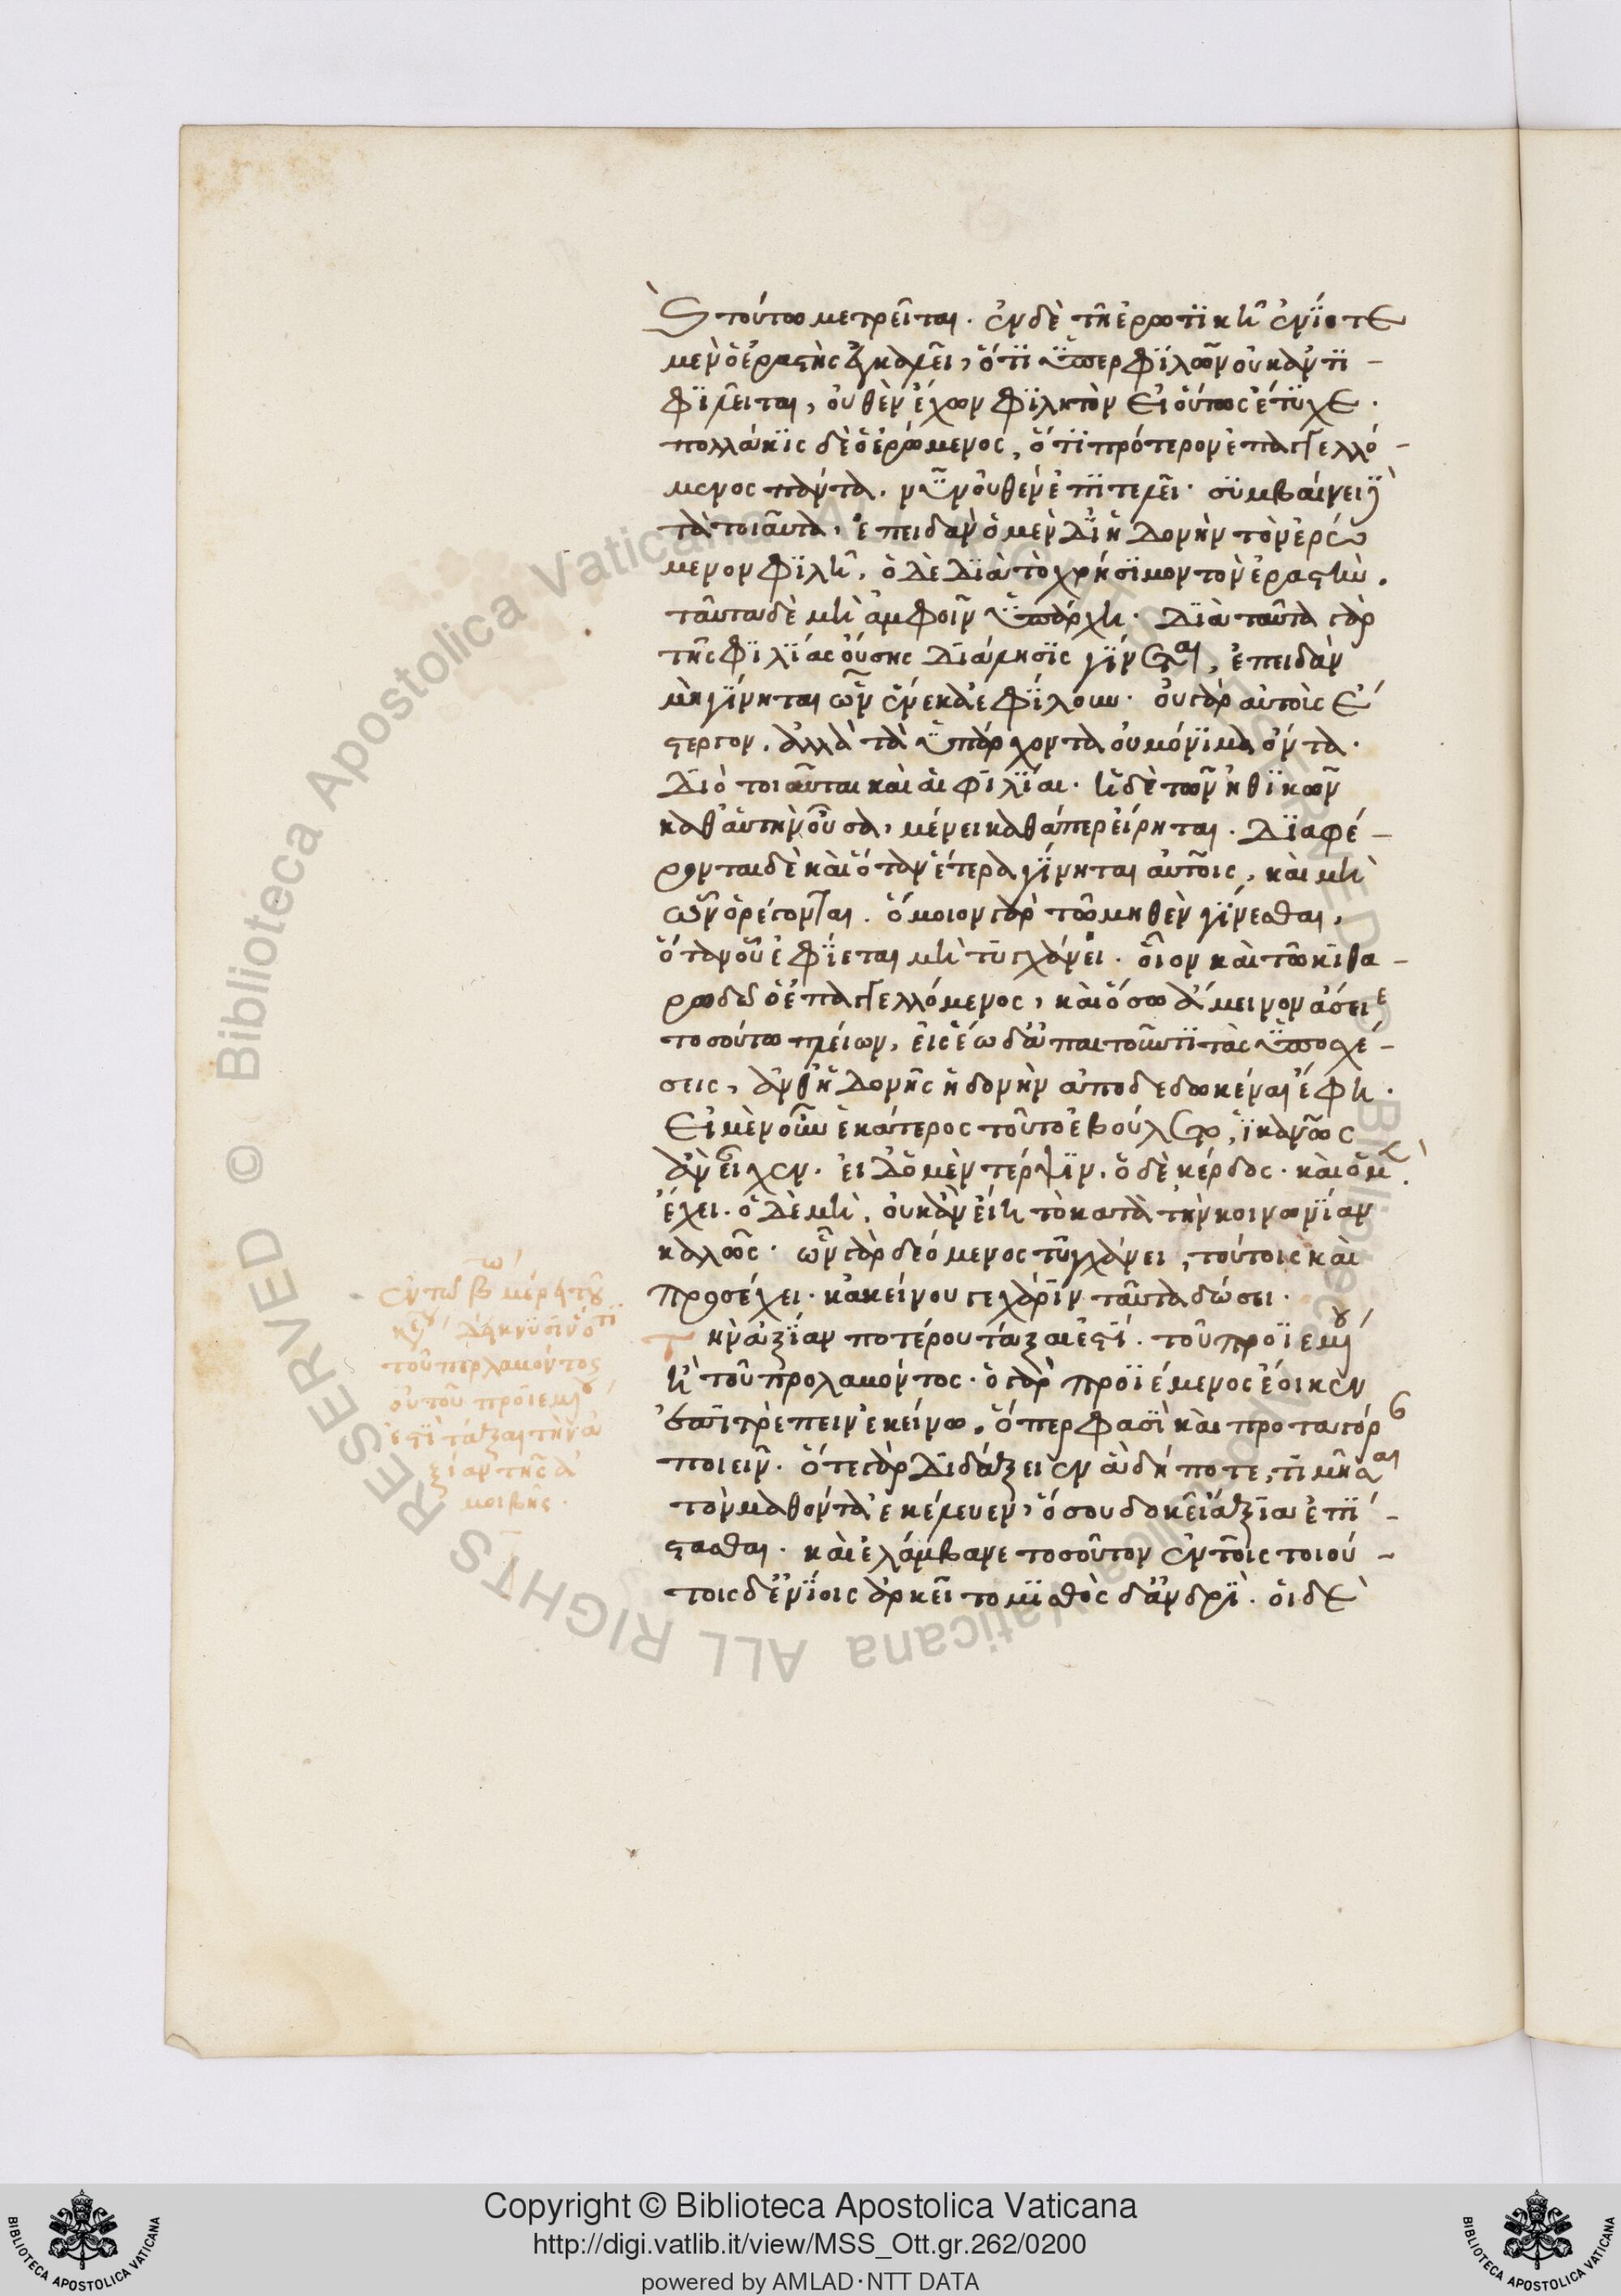 καὶ τούτω μετρεῖται. ἐν δὲ τῆ ἐρωτικῆ ἐνίοτε
μὲν ὁ ἐραστὴς ἐγκαλεῖ, ὅτι ὑπερφιλῶν οὐκ ἀντι-
φιλεῖται, οὐθὲν ἔχων φιλητὸν εἰ οὕτως ἔτυχε.
πολλάκις δὲ ὁ ἐρώμενος, ὅτι πρότερον ἐπαγγελλό-
μενος πάντα, νῦν οὐθὲν ἐπιτελεῖ. συμβαίνει δὲ
τὰ τοιαῦτα, ἐπειδὰν ὁ μὲν δι' ἡδονὴν τὸν ἐρώ
μενον φιλῆ, ὁ δὲ διὰ τὸ χρήσιμον τὸν ἐραστήν.
ταῦτα δὲ μὴ ἀμφοῖν ὑπάρχη. διὰ ταῦτα γὰρ
τῆς φιλίας οὔσης διάλυσις γίνεται, ἐπειδὰν
μὴ γίνηται ὧν ἕνεκα ἐφίλουν. οὐ γὰρ αὐτοὺς ἔ
στεργον, ἀλλὰ τὰ ὑπάρχοντα οὐ μόνιμα ὄντα.
διὸ τοιαῦται καὶ αἱ φιλίαι. ἡ δὲ τῶν ἠθικῶν
καθ' αὑτὴν οὖσα, μένει καθάπερ εἴρηται. διαφέ-
ρονται δὲ καὶ ὅταν ἕτερα γίνηται αὐτοῖς, καὶ μὴ
ὧν ὀρέγονται. ὅμοιον γὰρ τῶ μηθὲν γίνεσθαι,
ὅταν οὗ ἐφίεται μὴ τυγχάνει. οἷον καὶ τῶ κιθα-
ρωδῶ ὁ ἐπαγγελλόμενος, καὶ ὅσω ἄμεινον ἄσειε
τοσούτω πλείων, εἰς ἕω δ' ἀπαιτοῦντι τὰς ὑποσχέ-
σεις, ἀνθ' ἡδονῆς ἡδονὴν ἀποδεδωκέναι ἔφη.
Εἰ μὲν οὖν ἑκάτερος τοῦτο ἐβούλετο, ἱκανῶς
ἂν εἶχεν. εἰ δ' ὁ μὲν τέρψιν, ὁ δὲ κέρδος. καὶ ὁ μὲν
ἔχει. ὁ δὲ μὴ, οὐκ ἂν εἴη τὸ κατὰ τὴν κοινωνίαν
καλῶς. ὧν γὰρ δεόμενος τυγχάνει, τούτοις καὶ
προσέχει. κἀκείνου γε χάριν ταῦτα δώσει.
Τὴν ἀξίαν ποτέρου τάξαι ἐστί. τοῦ προϊεμένου
ἢ τοῦ προλαβόντος. ὁ γὰρ προϊέμενος ἔοικεν
ἐπιτρέπειν ἐκείνω, ὅπερ φασὶ καὶ πρωταγόρ
ποιεῖν. ὅτε γὰρ διδάξειεν ἃ δήποτε, τιμῆσαι
τὸν μαθόντα ἐκέλευεν, ὅσου δοκεῖ ἄξια ἐπί-
στασθαι. καὶ ἐλάμβανε τοσοῦτον ἐν τοῖς τοιού-
τοις δ' ἐνίοις ἀρκεῖ το μισθὸς δ' ἀνδρί. οἱ δὲ
ἐν τῶ βω μέρει τοῦ
δείκνυσιν ὅτι
τοῦ προλαβόντος
οὐ τοῦ προϊεμένου
ἐστὶ τάξαι τὴν ἀ
ξίαν τῆς ἀ
μοιβῆς.
© Biblioteca Apostolica Vaticana ALL RIGHTS RESERVED
Copyright © Biblioteca Apostolica Vaticana
http://digi.vatlib.it/view/MSS_Ott.gr.262/0200
powered by AMLAD·NTT DATA
BIBLIOTECA APOSTOLICA VATICANA
BIBLIOTECA APOSTOLICA VATICANA